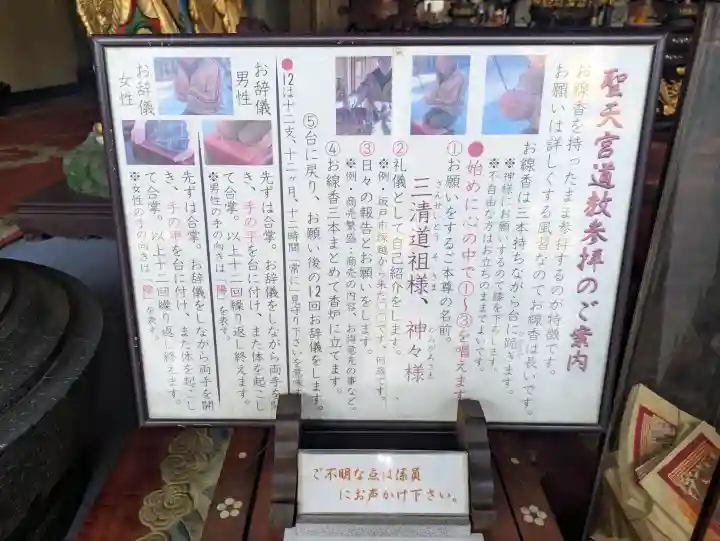 聖天宮道教参拝のご案内
お線香を持ったまま参拝するのが特徴です。
お願いは詳しくする風習なのでお線香は長いです。
お線香は三本持ちながら台に跪きます。
※神様にお願いするので膝を下ろします。
※不自由な方はお立ちのままでよいです。
●始めに心の中で①～③を唱えます
①お願いをするご本尊の名前。
三清道祖様、神々様
さんせいどうそさま
かみがみさま
②礼儀として自己紹介をします。
※例・坂戸市塚越から来た〇〇です、何歳です。
③日々の報告とお願いをします。
※例・商売繁盛・商売の内容、お得意先の事など。
④お線香三本まとめて香炉に立てます。
⑤台に戻り、お願い後の12回お辞儀をします。
●12は十二支、十二ヶ月、十二時間「常に」見守り下さいを意味
お辞儀
男性
先ずは合掌。お辞儀をしながら両手を開
き、手の甲を台に付け、また体を起こし
て合掌。以上十二回繰り返し終えます。
※男性の手の向きは「陽」を表す。
お辞儀
女性
先ずは合掌。お辞儀をしながら両手を開
き、手の平を台に付け、また体を起こし
て合掌。以上十二回繰り返し終えます。
※女性の手の向きは「陰」を表す。
ご不明な点は係員
にお声かけ下さい。